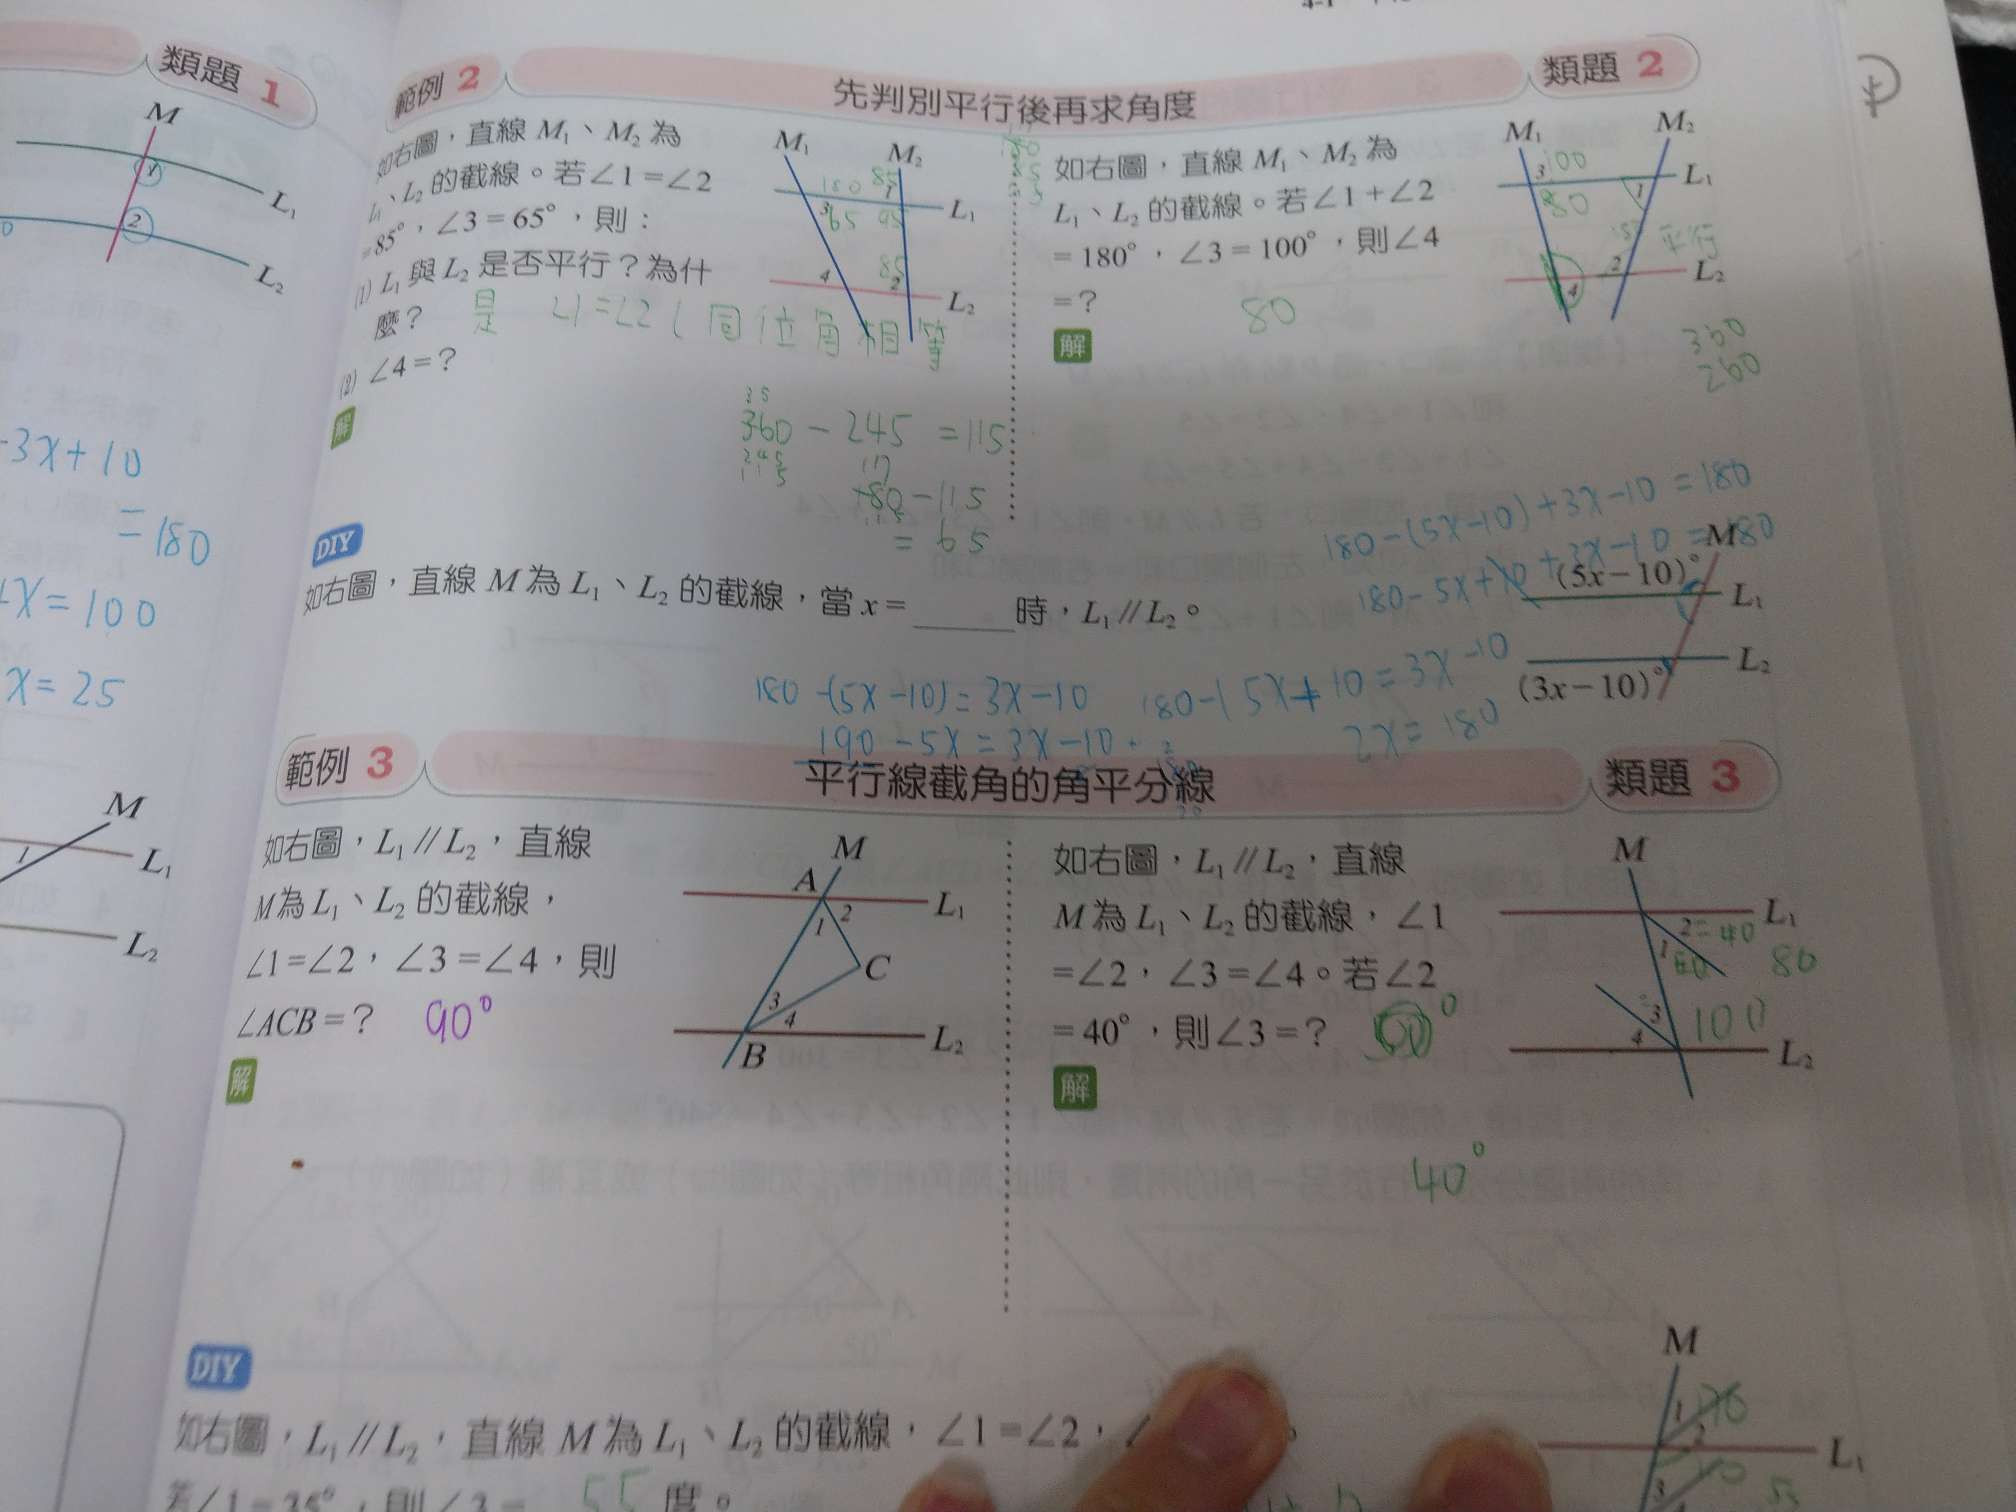 類題 1
M
1
L₁
2
L₂
-3x+10
=180
x=100
x=25
M
1
L₁
L₂
範例 2
先判別平行後再求角度
類題 2
如右圖，直線 M₁、M₂ 為
L₁、L₂ 的截線。若∠1=∠2
=85°，∠3=65°，則：
(1) L₁ 與 L₂ 是否平行？為什
麼？
是 ∠1=∠2 (同位角相等
(2) ∠4=？
解
M₁
M₂
85
1
3
65
95
L₁
4
85
2
L₂
360-245=115
180-115
=65
如右圖，直線 M₁、M₂ 為
L₁、L₂ 的截線。若∠1+∠2
=180°，∠3=100°，則∠4
=？
80
解
M₁
M₂
3
100
80
1
L₁
平行
2
4
L₂
360
260
DIY
如右圖，直線 M 為 L₁、L₂ 的截線，當 x=____時，L₁∥L₂。
180-(5x-10)+3x-10=180
180-5x+10+3x-10=180
M
(5x-10)°
L₁
L₂
(3x-10)°
180-(5x-10)=3x-10
190-5x=3x-10
180-(5x+10=3x-10
2x=180
範例 3
平行線截角的角平分線
類題 3
如右圖，L₁∥L₂，直線
M為 L₁、L₂ 的截線，
∠1=∠2，∠3=∠4，則
∠ACB=？ 90°
解
M
A
L₁
1
2
C
3
4
L₂
B
如右圖，L₁∥L₂，直線
M 為 L₁、L₂ 的截線，∠1
=∠2，∠3=∠4。若∠2
=40°，則∠3=？
解
40°
M
L₁
2=40
1
80
3
100
4
L₂
DIY
如右圖，L₁∥L₂，直線 M 為 L₁、L₂ 的截線，∠1=∠2，∠
若∠1=35°，則∠3= 55 度。
M
1
2
L₁
3